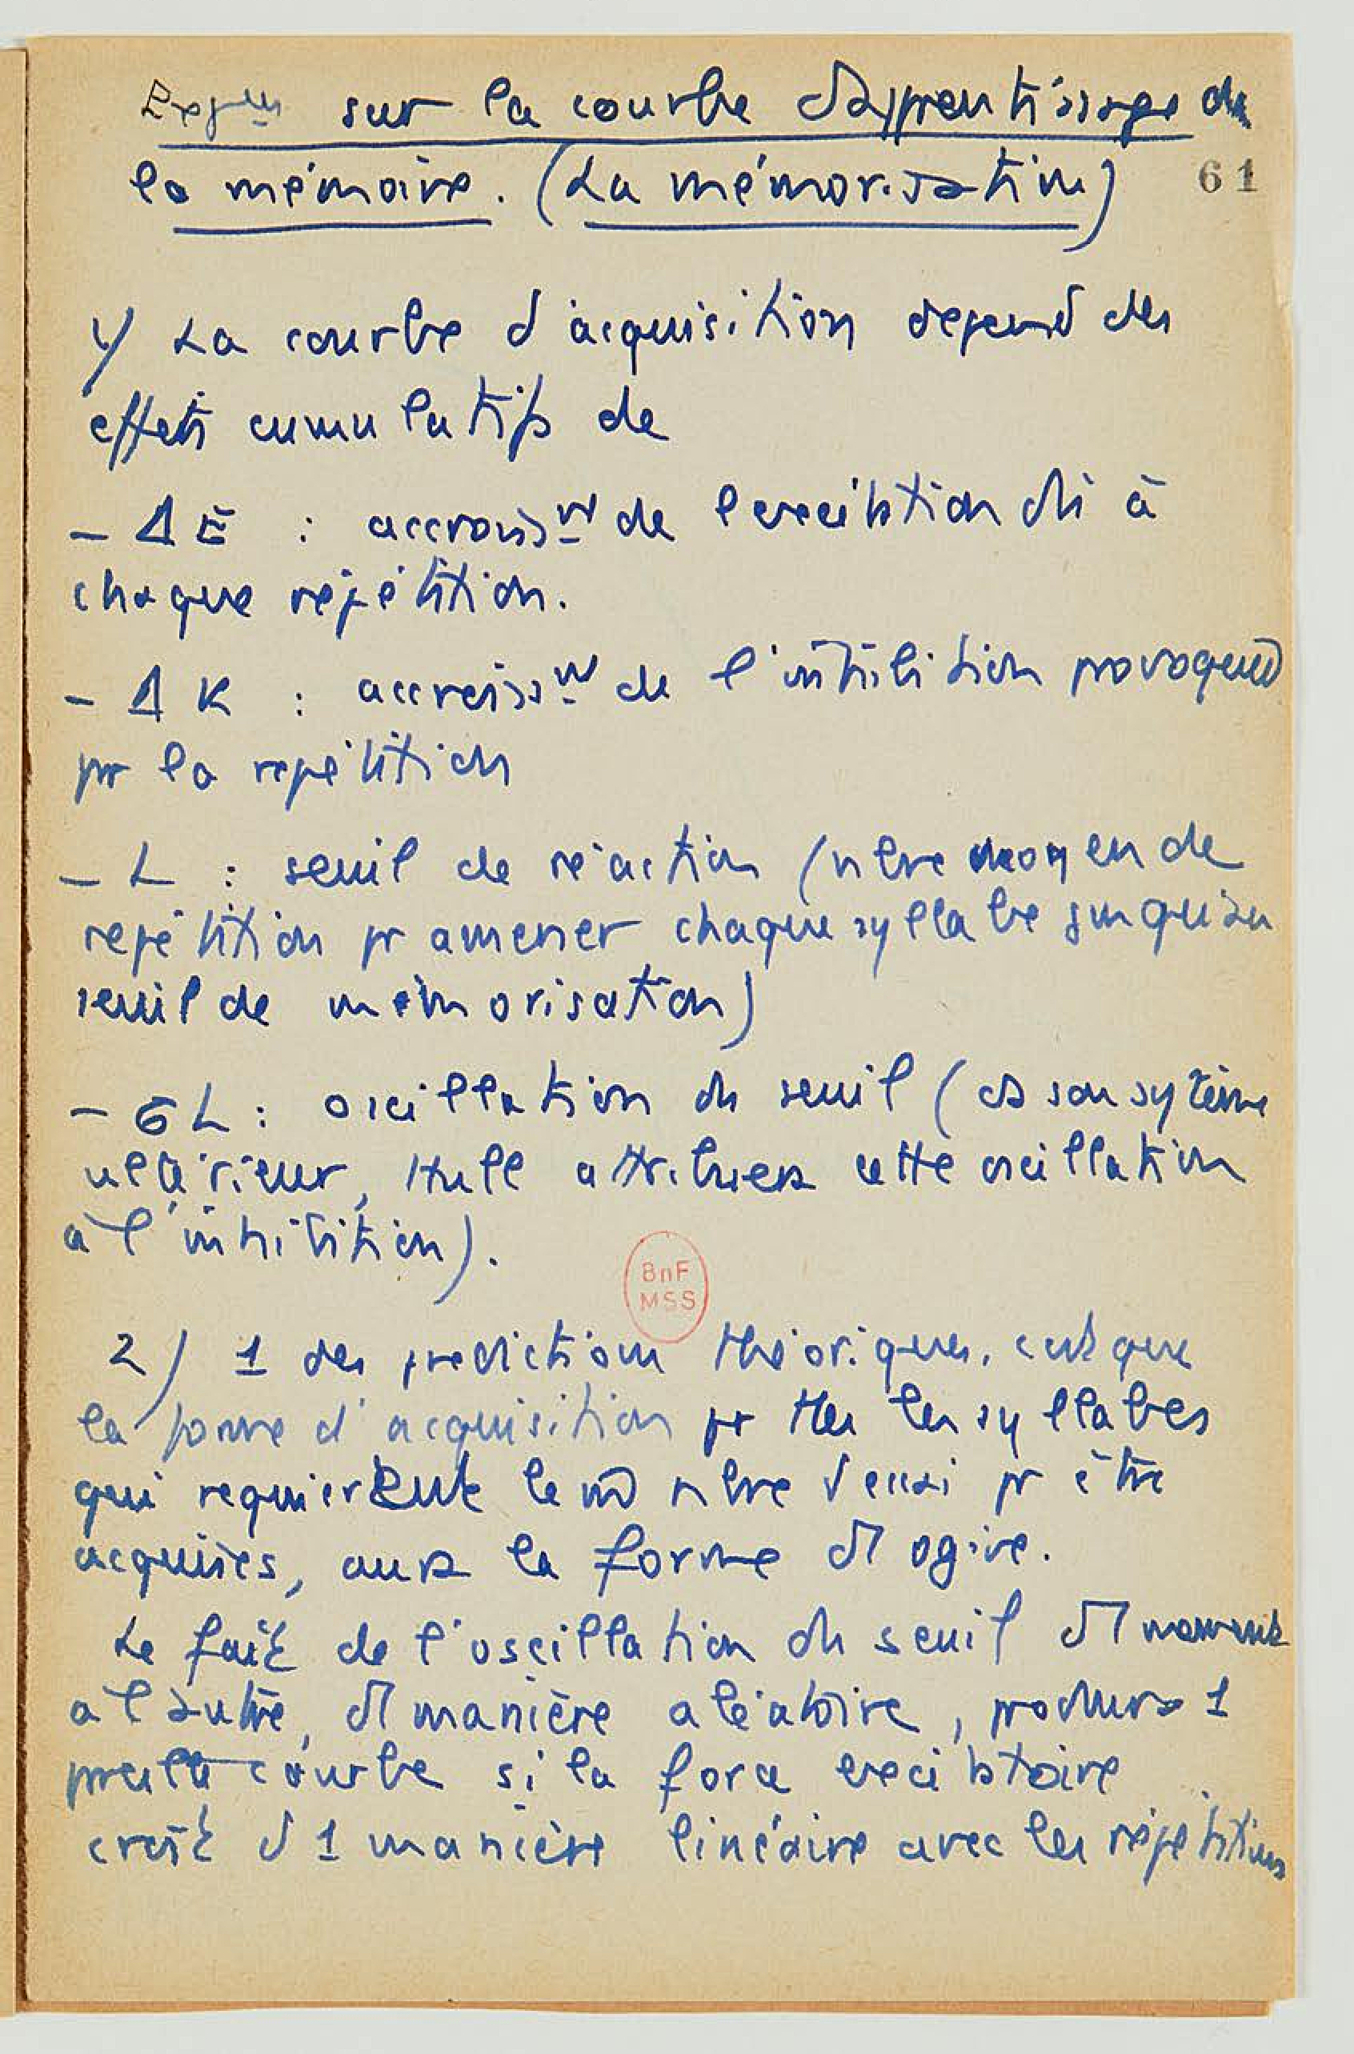 sur la courbe d'apprentissage de
la mémoire. (La mémorisation)
61
1) La courbe d'acquisition depend des
effets cumulatifs de
- Δ E : accroiss nt de l'excitation dû à
chaque répétition.
- Δ K : accroiss nt de l'inhibition provoquée
pr la repétition
- L : seuil de réaction (nbre moyen de
repétition pr amener chaque syllabe jusqu'au
seuil de mémorisation)
- σ L : oscillation du seuil (ds son système
ultérieur, Hull attribuera cette oscillation
à l'inhibition).
BnF
MSS
2) 1 des predictions théoriques, c'est que
la forme d'acquisition pr ttes les syllabes
qui requièrent le m nbre d'essai pr être
acquises, aura la forme d' ogive.
Le fait de l'oscillation du seuil d'1 moment
à l'autre, d'1 manière aléatoire, produira 1
courbe si la force excitatoire
croît d'1 manière linéaire avec les répétitions